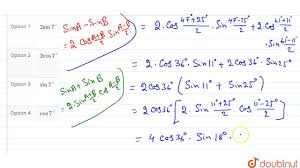 Option 1 2sin7°
Option 2 2cos7°
Option 3 sin7°
Option 4 cos7°
SinA - SinB
= 2 Cos A+B/2 . Sin A-B/2
SinA + SinB
= 2. Sin A+B/2 . Cos A-B/2
= 2. Cos 47°+25°/2 . Sin 47°-25°/2 + 2. Cos 61°+11°/2 . Sin 61°-11°/2
= 2. Cos36° . Sin 11° + 2 Cos36° . Sin25°
= 2 Cos36° [Sin11° + Sin25°]
= 2 Cos36° [2. Sin 11°+25°/2 . Cos 11°-25°/2]
= 4 Cos36° . Sin 18° .
doubtnut